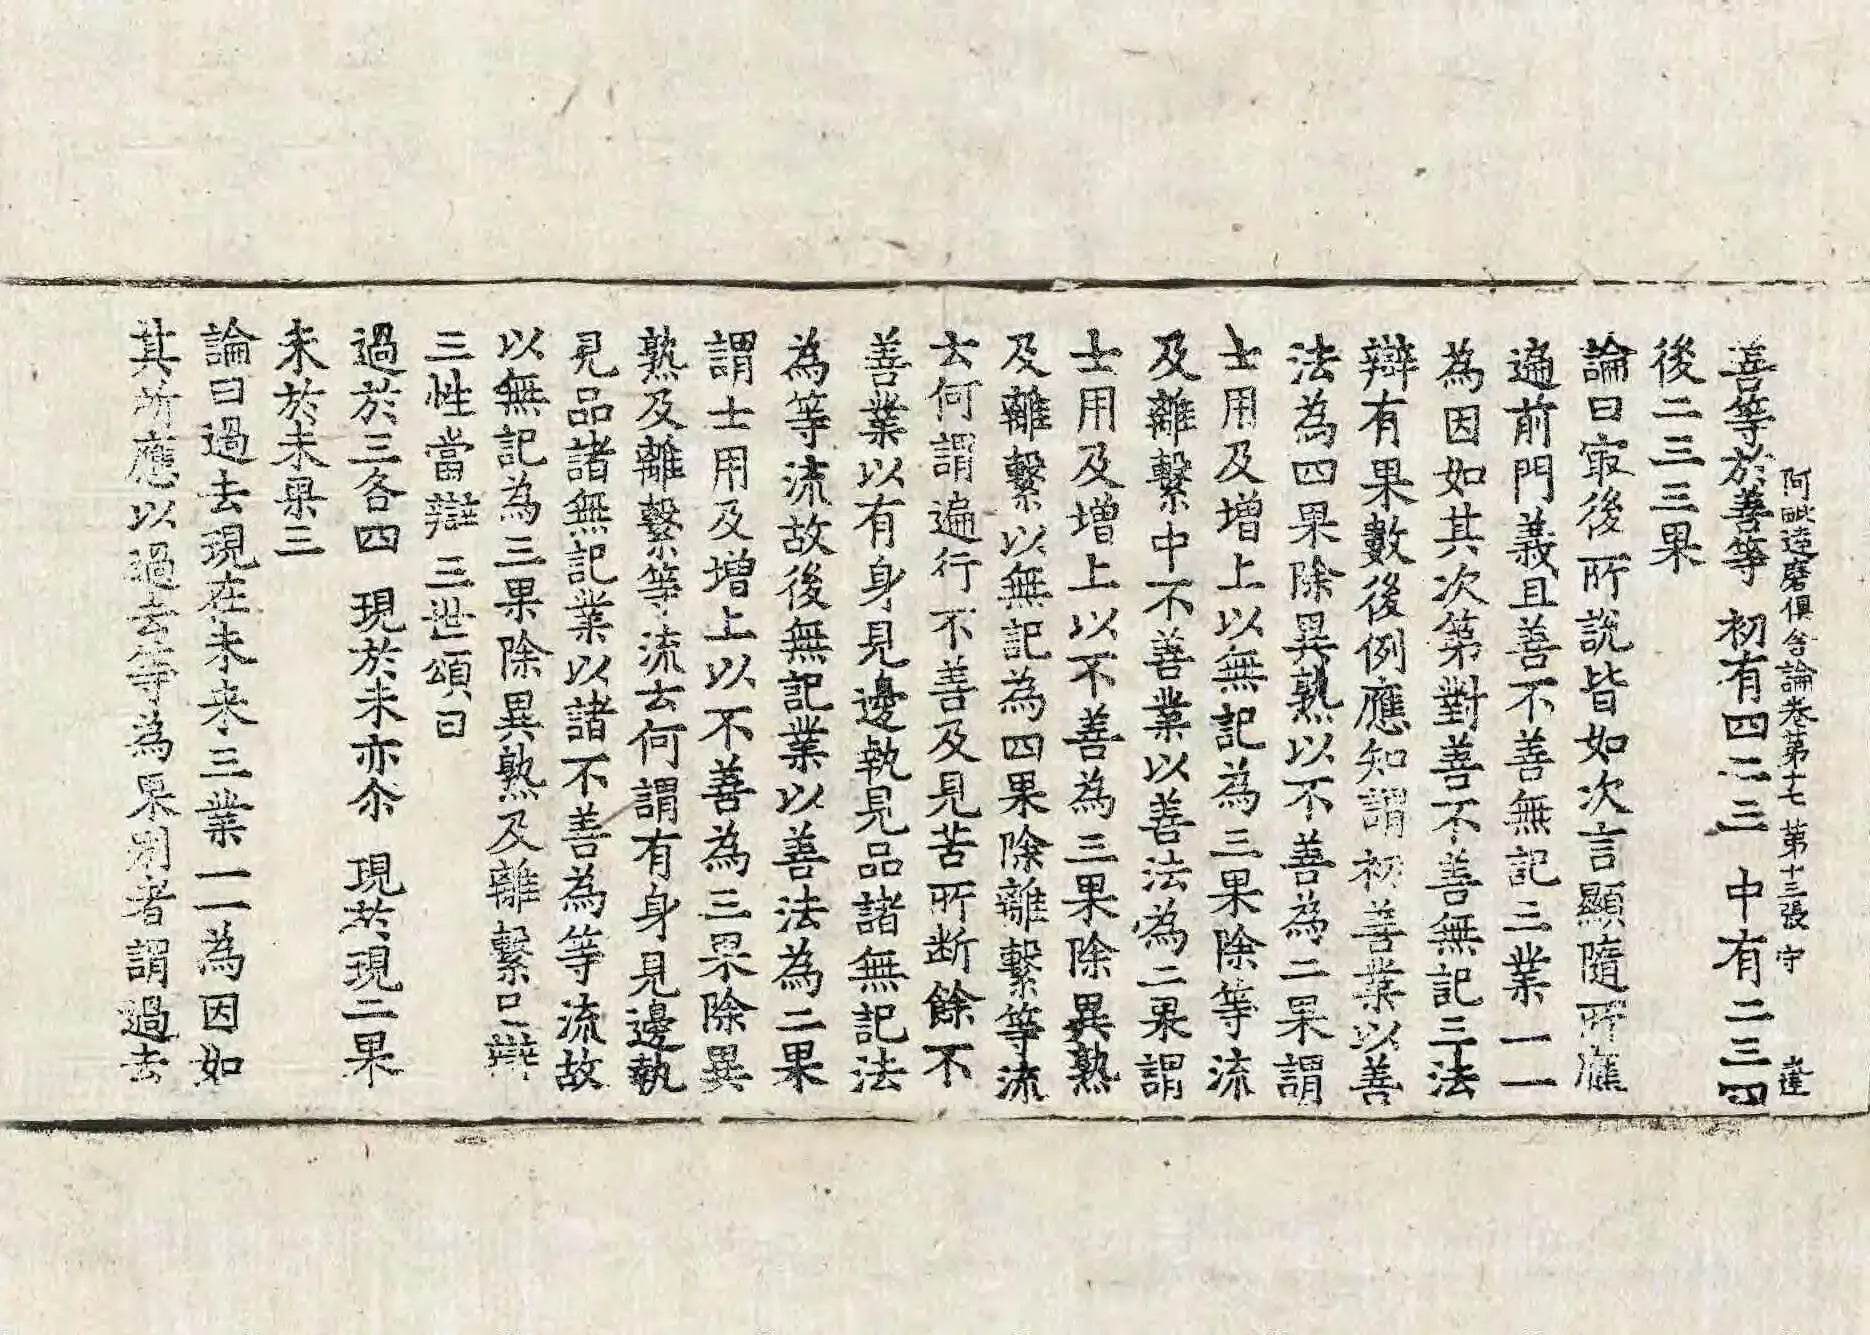 阿毗達磨俱舍論卷第十七 第十三張 守
善等於善等 初有四二三 中有二三四
後二三三果
論曰冣後所說皆如次言顯隨所應
遍前門義且善不善無記三業一一
為因如其次第對善不善無記三法
辯有果數後例應知謂初善業以善
法為四果除異熟以不善為二果謂
士用及增上以無記為三果除等流
及離繫中不善業以善法為二果謂
士用及增上以不善為三果除異熟
及離繫以無記為四果除離繫等流
云何謂遍行不善及見苦所断餘不
善業以有身見邊執見品諸無記法
為等流故後無記業以善法為二果
謂士用及增上以不善為三果除異
熟及離繫等流云何謂有身見邊執
見品諸無記業以諸不善為等流故
以無記為三果除異熟及離繫已辯
三性當辯三世頌曰
過於三各四 現於未亦尒 現於現二果
未於未果三
論曰過去現在未来三業一一為因如
其所應以過去等為果別者謂過去